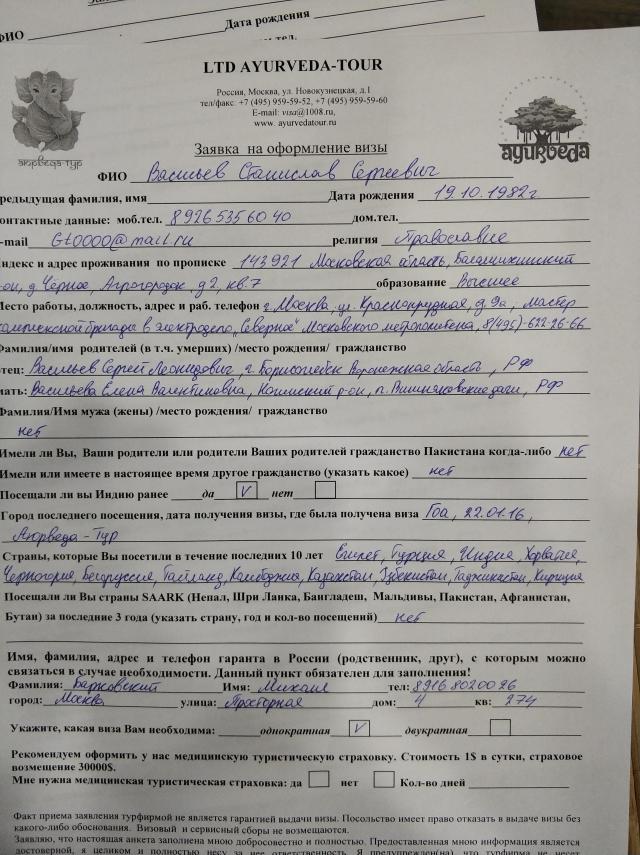 ФИО
Дата рождения
LTD AYURVEDA-TOUR
Россия, Москва, ул. Новокузнецкая, д.1
тел/факс: +7 (495) 959-59-52, +7 (495) 959-59-60
E-mail: visa@1008.ru,
www. ayurvedatour.ru
аюрведа-тур
ayurveda
Заявка на оформление визы
ФИО Васильев Станислав Сергеевич
редыдущая фамилия, имя Дата рождения 19.10.1982г
онтактные данные: моб.тел. 8926 535 60 40 дом.тел.
-mail Gt0000@mail.ru религия Православие
ндекс и адрес проживания по прописке 143921 Московская область, Балашихинский
-он, д. Черное, Агрогородок, д 2, кв. 7 образование Высшее
Место работы, должность, адрес и раб. телефон г. Москва, ул. Краснопрудная, д. 9а, мастер
комплексной бригады в электродепо "Северное" Московского метрополитена, 8(495)-622-26-66
Фамилия/имя родителей (в т.ч. умерших) /место рождения/ гражданство
тец: Васильев Сергей Леонидович, г. Борисоглебск Воронежская область, РФ
мать: Васильева Елена Валентиновна, р-он, п. РФ
Фамилия/Имя мужа (жены) /место рождения/ гражданство
нет
Имели ли Вы, Ваши родители или родители Ваших родителей гражданство Пакистана когда-либо нет
Имели или имеете в настоящее время другое гражданство (указать какое) нет
Посещали ли вы Индию ранее да V нет
Город последнего посещения, дата получения визы, где была получена виза Гоа, 22.01.16,
Аюрведа-Тур
Страны, которые Вы посетили в течение последних 10 лет Египет, Турция, Индия, Хорватия,
Черногория, Белоруссия, Таиланд, Камбоджия, Казахстан, Узбекистан, Таджикистан, Киргизия
Посещали ли Вы страны SAARK (Непал, Шри Ланка, Бангладеш, Мальдивы, Пакистан, Афганистан,
Бутан) за последние 3 года (указать страну, год и кол-во посещений) нет
Имя, фамилия, адрес и телефон гаранта в России (родственник, друг), с которым можно
связаться в случае необходимости. Данный пункт обязателен для заполнения!
Фамилия: Барковский Имя: Михаил тел: 8916 8020026
город: Москва улица: Просторная дом: 4 кв: 274
Укажите, какая виза Вам необходима: однократная V двукратная
Рекомендуем оформить у нас медицинскую туристическую страховку. Стоимость 1$ в сутки, страховое
возмещение 30000$.
Мне нужна медицинская туристическая страховка: да нет Кол-во дней
Факт приема заявления турфирмой не является гарантией выдачи визы. Посольство имеет право отказать в выдаче визы без
какого-либо обоснования. Визовый и сервисный сборы не возмещаются.
Заявляю, что настоящая анкета заполнена мною добросовестно и полностью. Предоставленная мною информация является
достоверной, я целиком и полностью несу за нее ответственность. Я предупрежден(на), что турфирма не несет